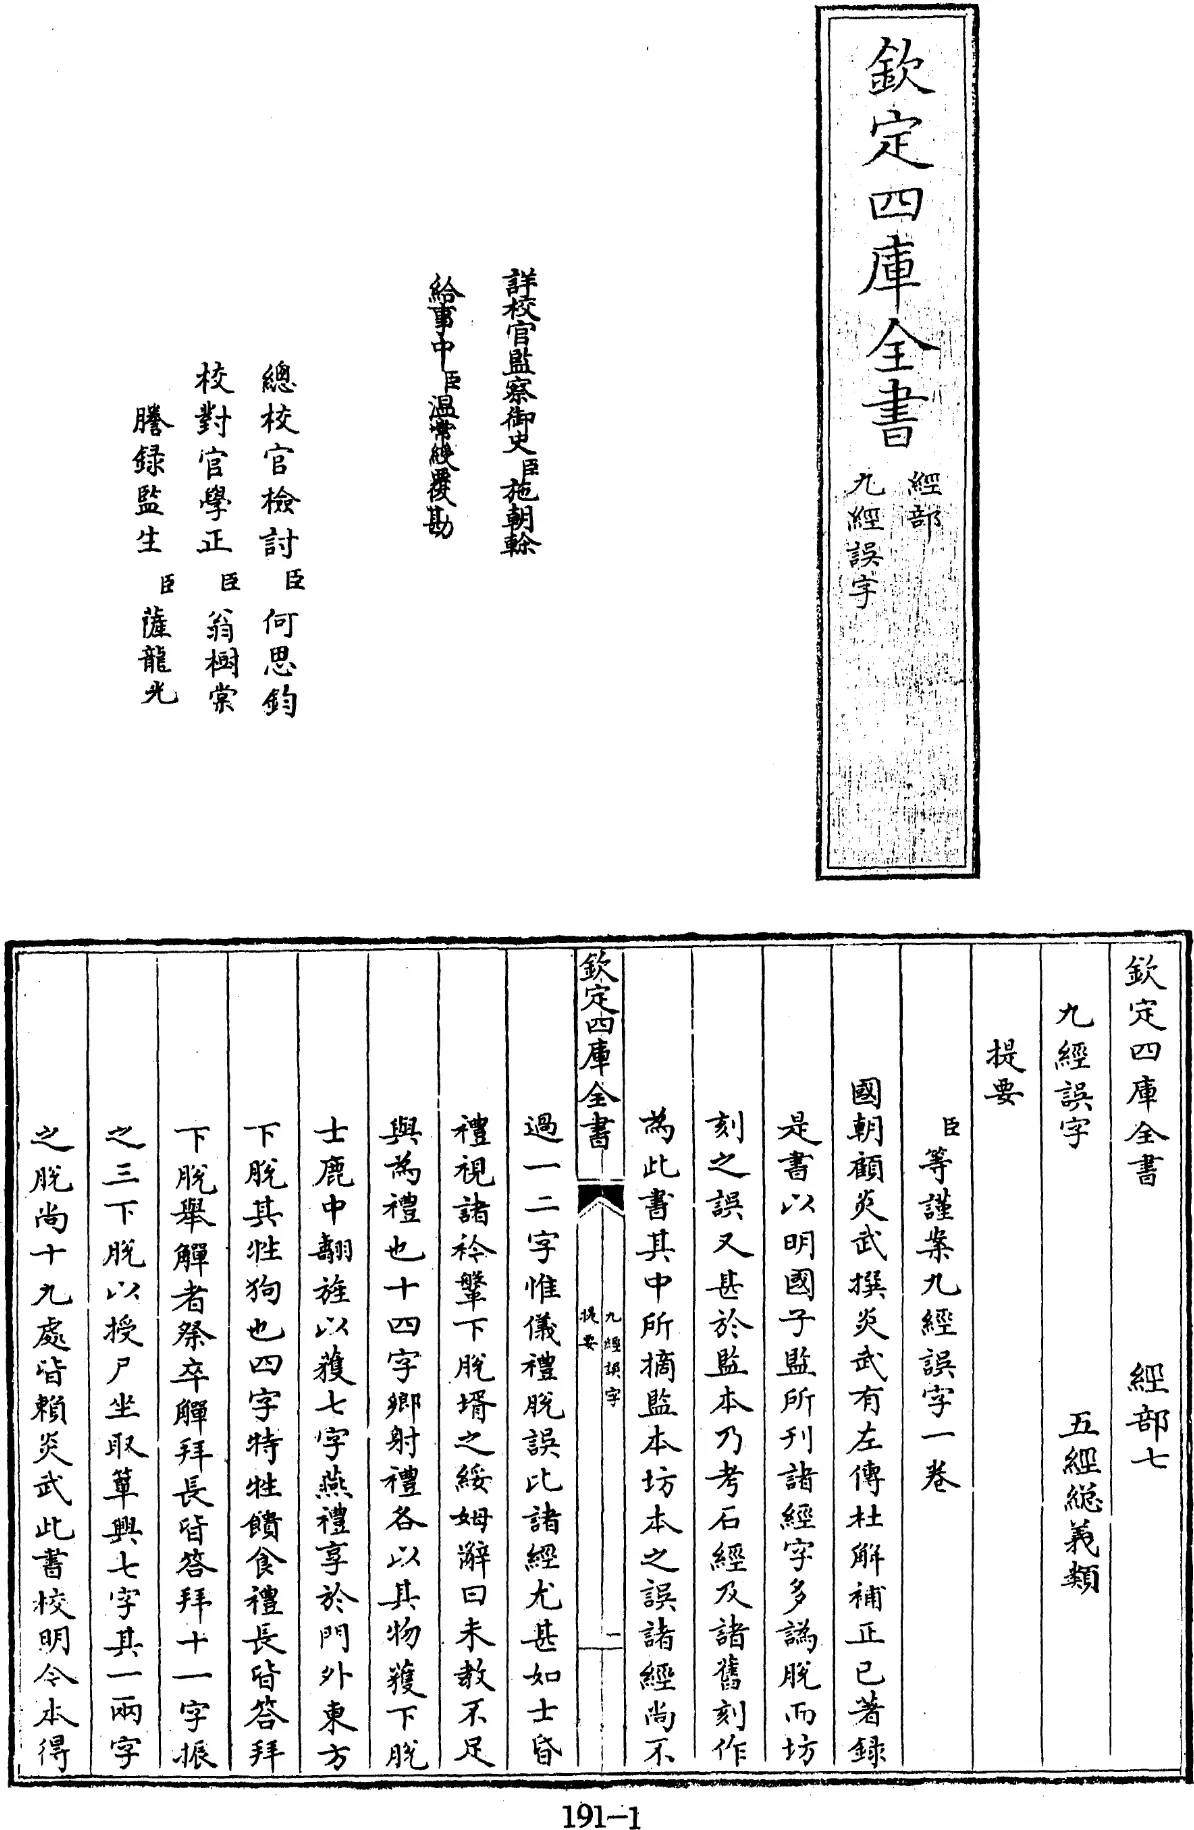 欽定四庫全書
經部
九經誤字
詳校官監察御史臣施朝榦
給事中臣温常綬覆勘
總校官檢討臣何思鈞
校對官學正臣翁樹棠
謄錄監生臣薩龍光
欽定四庫全書 經部七
九經誤字 五經總義類
提要
臣等謹案九經誤字一卷
國朝顧炎武撰炎武有左傳杜解補正已著錄
是書以明國子監所刊諸經字多譌脫而坊
刻之誤又甚於監本乃考石經及諸舊刻作
為此書其中所摘監本坊本之誤諸經尚不
欽定四庫全書
九經誤字
提要
一
過一二字惟儀禮脫誤比諸經尤甚如士昏
禮視諸衿鞶下脫壻之綏姆辭曰未敎不足
與為禮也十四字鄉射禮各以其物獲下脫
士鹿中翿旌以獲七字燕禮享於門外東方
下脫其牲狗也四字特牲饋食禮長皆答拜
下脫舉觶者祭卒觶拜長皆答拜十一字振
之三下脫以授尸坐取簞興七字其一兩字
之脫尚十九處皆賴炎武此書校明令本得
191-1